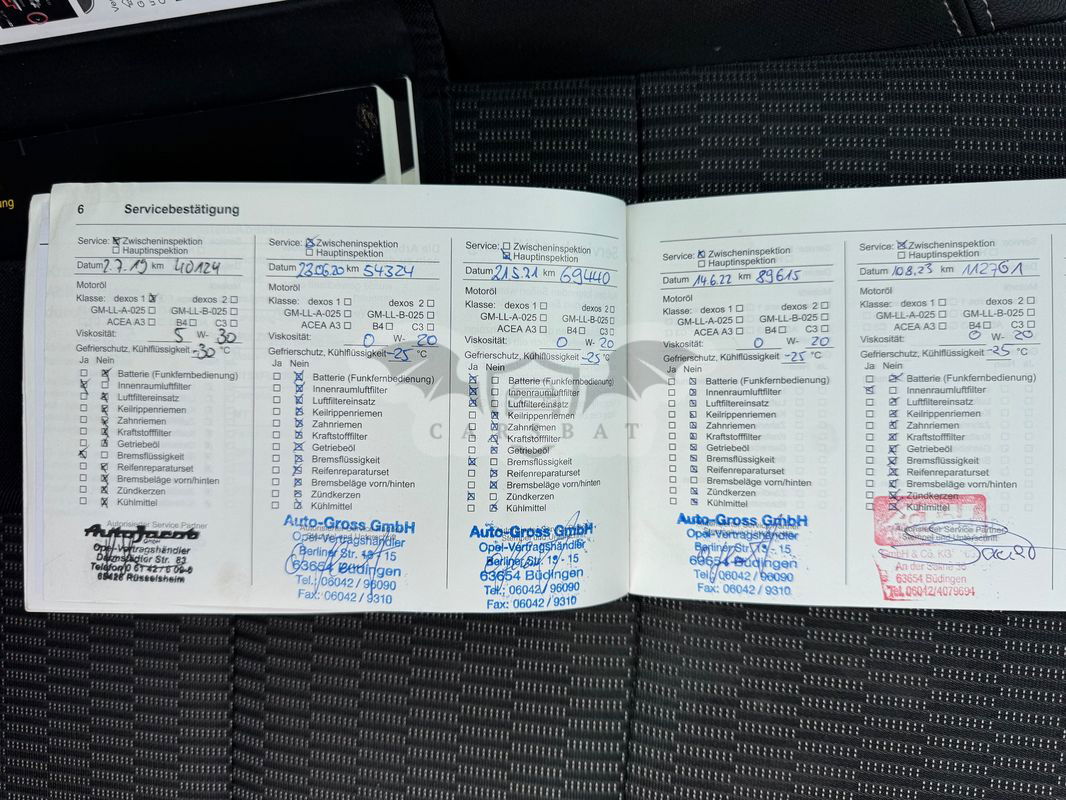 6 Servicebestätigung
Service: Zwischeninspektion
Hauptinspektion
Datum 2.7.19 km 40124
Motoröl
Klasse: dexos 1 dexos 2
GM-LL-A-025 GM-LL-B-025
ACEA A3 B4 C3
Viskosität: 5 W- 30
Gefrierschutz, Kühlflüssigkeit -30 °C
Ja Nein
Batterie (Funkfernbedienung)
Innenraumluftfilter
Luftfiltereinsatz
Keilrippenriemen
Zahnriemen
Kraftstofffilter
Getriebeöl
Bremsflüssigkeit
Reifenreparaturset
Bremsbeläge vorn/hinten
Zündkerzen
Kühlmittel
Autorisierter Service Partner
AutoJacob
GmbH
Opel-Vertragshändler
Darmstädter Str. 83
65428 Rüsselsheim
Service: Zwischeninspektion
Hauptinspektion
Datum 23.06.20 km 54324
Motoröl
Klasse: dexos 1 dexos 2
GM-LL-A-025 GM-LL-B-025
ACEA A3 B4 C3
Viskosität: 0 W- 20
Gefrierschutz, Kühlflüssigkeit -25 °C
Ja Nein
Batterie (Funkfernbedienung)
Innenraumluftfilter
Luftfiltereinsatz
Keilrippenriemen
Zahnriemen
Kraftstofffilter
Getriebeöl
Bremsflüssigkeit
Reifenreparaturset
Bremsbeläge vorn/hinten
Zündkerzen
Kühlmittel
Auto-Gross GmbH
Opel-Vertragshändler
Berliner Str. 13 - 15
63654 Büdingen
Tel.: 06042 / 96090
Fax: 06042 / 9310
Service: Zwischeninspektion
Hauptinspektion
Datum 21.5.21 km 69440
Motoröl
Klasse: dexos 1 dexos 2
GM-LL-A-025 GM-LL-B-025
ACEA A3 B4 C3
Viskosität: 0 W- 20
Gefrierschutz, Kühlflüssigkeit -25 °C
Ja Nein
Batterie (Funkfernbedienung)
Innenraumluftfilter
Luftfiltereinsatz
Keilrippenriemen
Zahnriemen
Kraftstofffilter
Getriebeöl
Bremsflüssigkeit
Reifenreparaturset
Bremsbeläge vorn/hinten
Zündkerzen
Kühlmittel
Auto-Gross GmbH
Opel-Vertragshändler
Berliner Str. 13 - 15
63654 Büdingen
Tel.: 06042 / 96090
Fax: 06042 / 9310
Service: Zwischeninspektion
Hauptinspektion
Datum 14.6.22 km 89615
Motoröl
Klasse: dexos 1 dexos 2
GM-LL-A-025 GM-LL-B-025
ACEA A3 B4 C3
Viskosität: 0 W- 20
Gefrierschutz, Kühlflüssigkeit -25 °C
Ja Nein
Batterie (Funkfernbedienung)
Innenraumluftfilter
Luftfiltereinsatz
Keilrippenriemen
Zahnriemen
Kraftstofffilter
Getriebeöl
Bremsflüssigkeit
Reifenreparaturset
Bremsbeläge vorn/hinten
Zündkerzen
Kühlmittel
Auto-Gross GmbH
Opel-Vertragshändler
Berliner Str. 13 - 15
63654 Büdingen
Tel.: 06042 / 96090
Fax: 06042 / 9310
Service: Zwischeninspektion
Hauptinspektion
Datum 10.8.23 km 112761
Motoröl
Klasse: dexos 1 dexos 2
GM-LL-A-025 GM-LL-B-025
ACEA A3 B4 C3
Viskosität: 0 W- 20
Gefrierschutz, Kühlflüssigkeit -25 °C
Ja Nein
Batterie (Funkfernbedienung)
Innenraumluftfilter
Luftfiltereinsatz
Keilrippenriemen
Zahnriemen
Kraftstofffilter
Getriebeöl
Bremsflüssigkeit
Reifenreparaturset
Bremsbeläge vorn/hinten
Zündkerzen
Kühlmittel
Autorisierter Service Partner
Stempel und Unterschrift
GmbH & Co. KG
63654 Büdingen
Tel. 06042/4079694
CARSBAT
ung